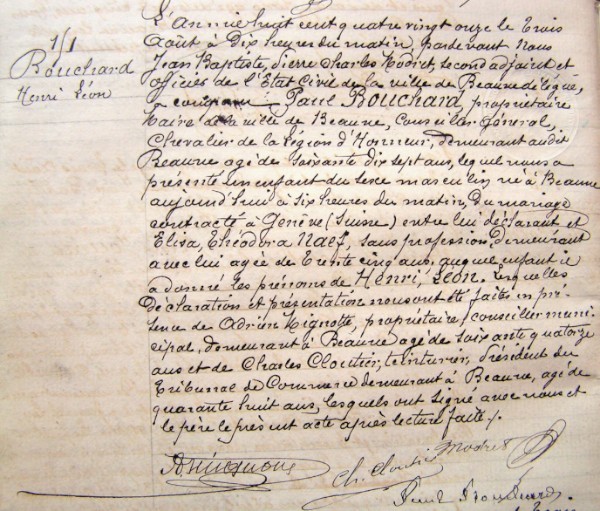 171
Bouchard
Henri Léon
L'An mil huit cent quatre vingt onze le Trois
Août à Dix heures du matin, pardevant Nous
Jean Baptiste, Pierre Charles Modret, second adjoint et
officier de l'Etat Civil de la ville de Beaune délégué,
a comparu Paul Bouchard, propriétaire
Maire de la ville de Beaune, Conseiller Général,
Chevalier de la Légion d'Honneur, demeurant audit
Beaune agé de soixante dix sept ans, lequel nous a
présenté un enfant du sexe masculin né à Beaune
aujourd'hui à six heures du matin, Du mariage
contracté à Genève (Suisse) entre lui déclarant et
Elisa, Théodora Naef, sans profession, demeurant
avec lui agée de Trente cinq ans, auquel enfant il
a donné les prénoms de Henri, Léon. Lesquelles
Déclaration et présentation nous ont été faites en pré-
sence de Adrien Mignotte, propriétaire, conseiller muni-
cipal, demeurant à Beaune agé de soixante quatorze
ans et de Charles Cloutier, teinturier, Président du
Tribunal de Commerce demeurant à Beaune, agé de
quarante huit ans, lesquels ont signé avec nous et
le père le présent acte après lecture faite./.
Ch. Cloutier Modret
Paul Bouchard